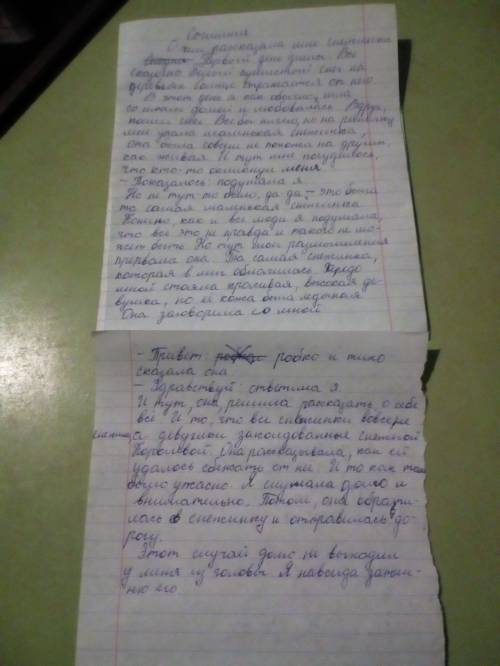 Сочинение
О чём рассказала мне снежинка
Первый день зимы. Все
сказочно белый пушистый снег на
деревьях солнце отражается от него
В этот день я как обычно шла
со школы домой и любовалась. Вдруг,
пошел снег. Все бы ничего, но на
мне упала маленькая снежинка,
она была совсем не похожа на другие,
как живая. И тут мне почудилось,
что кто-то окликнул меня
- Показалось. подумала я.
Но не тут то было, да да - это была
та самая маленькая снежинка
Конечно, как и все люди я подумала,
что все это не правда и такого не мо-
жет быть. Но тут мои размышления
прервала она. Та самая снежинка,
которая в миг обратилась. Передо
мной стояла красивая, высокая де-
вушка, но её кожа была ледяная.
Она заговорила со мной
- Привет: робко и тихо
сказала она
- Здравствуй: ответила я.
И тут, она, решила рассказать о себе
всё И то, что все снежинки вовсе не
снежинки а девушки заколдованные снежной
Королевой. Она рассказывала, как ей
удалось сбежать от неё. И то как там
было ужасно. Я слушала долго и
внимательно. Потом, она обрати-
лась в снежинку и отправилась в до-
рогу.
Этот случай долго не выходил
у меня из головы. Я навсегда запом-
ню его